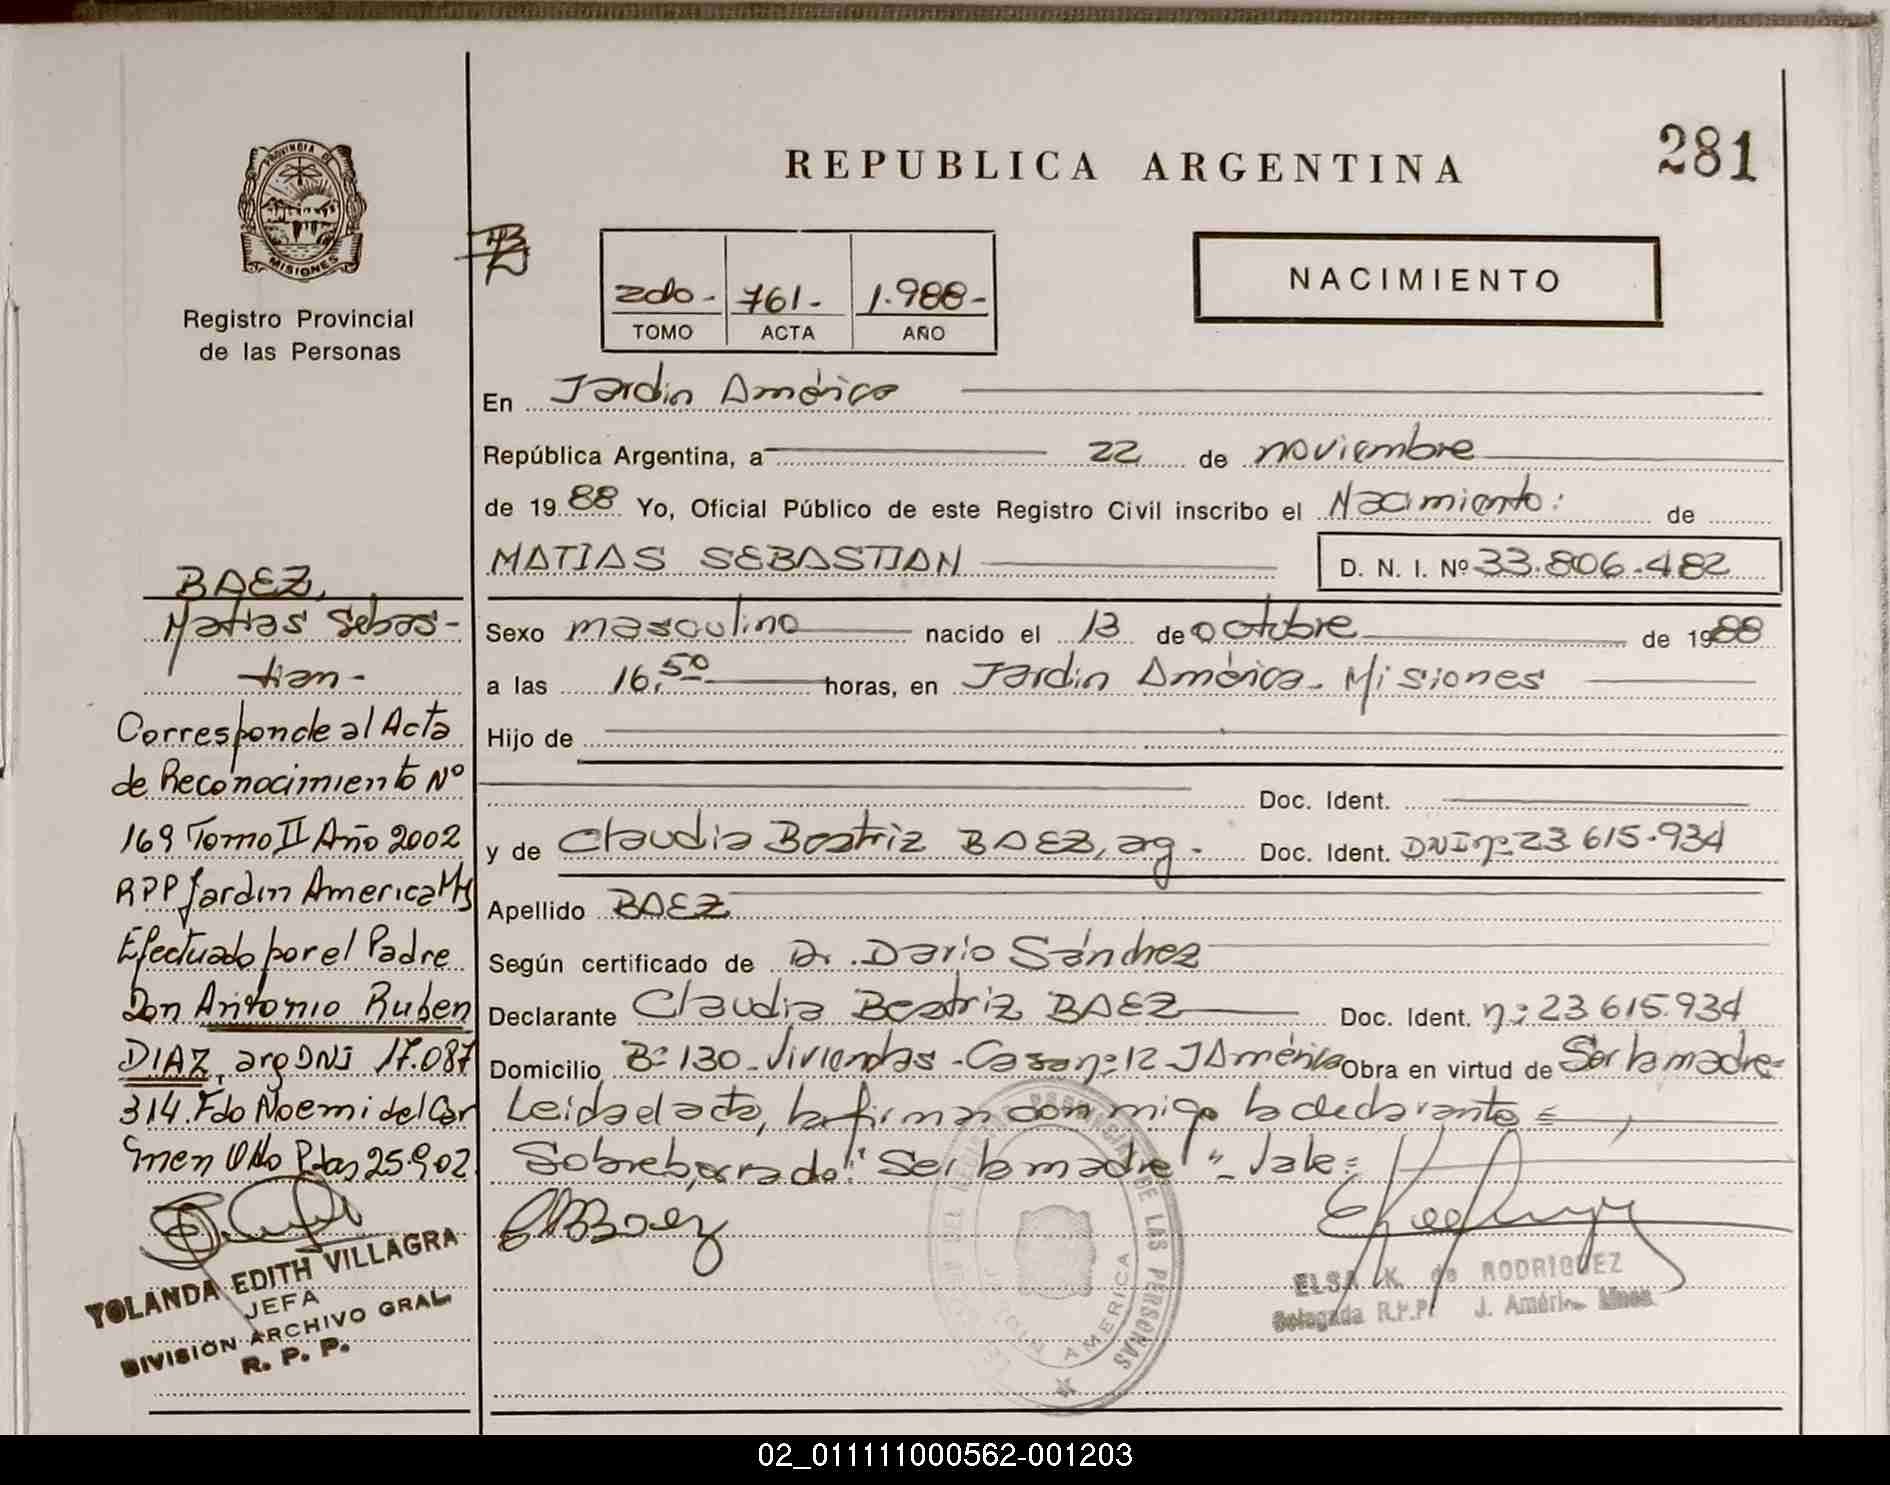 REPUBLICA ARGENTINA
281
PROVINCIA DE
MISIONES
Registro Provincial
de las Personas
2do.- 761.- 1.988-
TOMO ACTA AÑO
NACIMIENTO
En Jardin América
República Argentina, a 22 de noviembre
de 1988 Yo, Oficial Público de este Registro Civil inscribo el Nacimiento: de
MATIAS SEBASTIAN D. N. I. Nº 33.806.482
Sexo masculino nacido el 13 de octubre de 1988
a las 16,50 horas, en Jardin América. Misiones
Hijo de
Doc. Ident.
y de Claudia Beatriz BAEZ, arg - Doc. Ident. DNI nº 23 615.934
Apellido BAEZ
Según certificado de Dr. Dario Sánchez
Declarante Claudia Beatriz BAEZ Doc. Ident. nº 23 615.934
Domicilio Bº 130 - Viviendas - Casa nº 12 - J América Obra en virtud de Ser la madre=
Leida el acta, la firman con migo la declarante =
Sobreborrado: "Ser la madre" - Vale=
CBBaez
ELSA K. de RODRIGUEZ
Delegada R.P.P. J. América Mnes.
DE LAS PERSONAS
AMERICA
BAEZ,
Matias Sebas-
tian-
Corresponde al Acta
de Reconocimiento Nº
169 Tomo II Año 2002
RPP Jardin America Ms
Efectuado por el Padre
Don Antonio Ruben
DIAZ, arg DNI 17.087
314. Fdo Noemi del Car
men Pdas 25.9.02.
YOLANDA EDITH VILLAGRA
JEFA
DIVISIÓN ARCHIVO GRAL.
R. P. P.
02_011111000562-001203